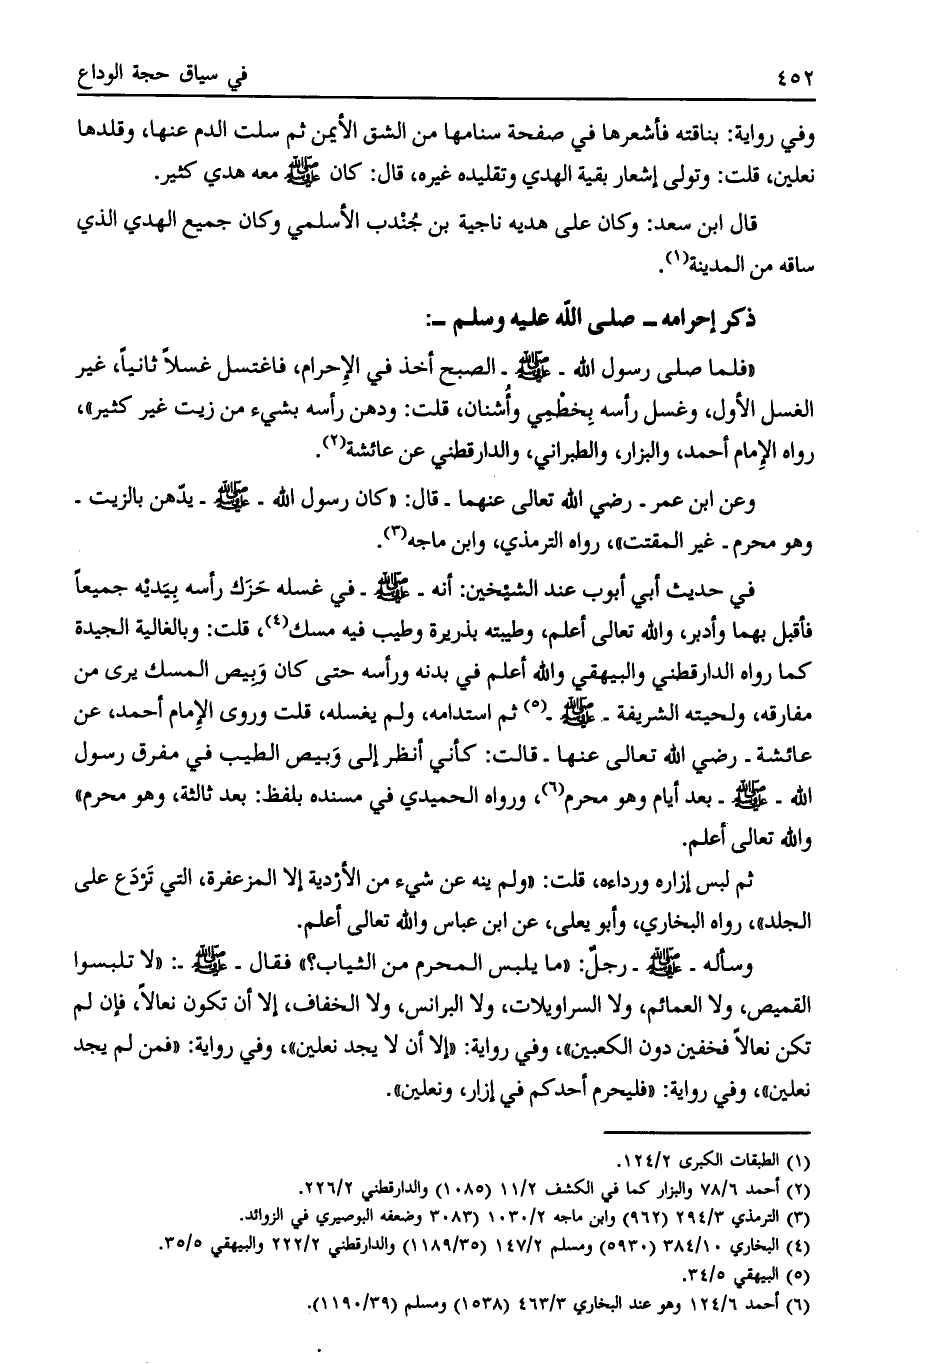 ٤٥٢ في سياق حجة الوداع
وفي رواية: بناقته فأشعرها في صفحة سنامها من الشق الأيمن ثم سلت الدم عنها، وقلدها
نعلين، قلت: وتولى إشعار بقية الهدي وتقليده غيره، قال: كان ﷺ معه هدي كثير.
قال ابن سعد: وكان على هديه ناجية بن جُنْدب الأسلمي وكان جميع الهدي الذي
ساقه من المدينة(١).
ذكر إحرامه ـ صلى اللّه عليه وسلم ـ:
«فلما صلى رسول الله ـ ﷺ ـ الصبح أخذ في الإِحرام، فاغتسل غسلاً ثانياً، غير
الغسل الأول، وغسل رأسه بِخطْمِي وأُشنان، قلت: ودهن رأسه بشيء من زيت غير كثير»،
رواه الإِمام أحمد، والبزار، والطبراني، والدارقطني عن عائشة(٢).
وعن ابن عمر ـ رضي الله تعالى عنهما ـ قال: «كان رسول الله ـ ﷺ ـ يدّهن بالزيت ـ
وهو محرم ـ غير المقتت»، رواه الترمذي، وابن ماجه(٣).
في حديث أبي أيوب عند الشيْخين: أنه ـ ﷺ ـ في غسله حَرَك رأسه بِيَديْه جميعاً
فأقبل بهما وأدبر، والله تعالى أعلم، وطيبته بذريرة وطيب فيه مسك(٤)، قلت: وبالغالية الجيدة
كما رواه الدارقطني والبيهقي والله أعلم في بدنه ورأسه حتى كان وَبِيص المسك يرى من
مفارقه، ولحيته الشريفة ـ ﷺ ـ(٥) ثم استدامه، ولم يغسله، قلت وروى الإِمام أحمد، عن
عائشة ـ رضي الله تعالى عنها ـ قالت: كأني أنظر إلى وَبيص الطيب في مفرق رسول
الله ـ ﷺ ـ بعد أيام وهو محرم(٦)، ورواه الحميدي في مسنده بلفظ: بعد ثالثة، وهو محرم»
والله تعالى أعلم.
ثم لبس إزاره ورداءه، قلت: «ولم ينه عن شيء من الأرْدية إلا المزعفرة، التي تَرْدَع على
الجلد»، رواه البخاري، وأبو يعلى، عن ابن عباس والله تعالى أعلم.
وسأله ـ ﷺ ـ رجلٌ: «ما يلبس المحرم من الثياب؟» فقال ـ ﷺ ـ: «لا تلبسوا
القميص، ولا العمائم، ولا السراويلات، ولا البرانس، ولا الخفاف، إلا أن تكون نعالاً، فإن لم
تكن نعالاً فخفين دون الكعبين»، وفي رواية: «إلا أن لا يجد نعلين»، وفي رواية: «فمن لم يجد
نعلين»، وفي رواية: «فليحرم أحدكم في إزار، ونعلين».
(١) الطبقات الكبرى ١٢٤/٢.
(٢) أحمد ٧٨/٦ والبزار كما في الكشف ١١/٢ (١٠٨٥) والدارقطني ٢٢٦/٢.
(٣) الترمذي ٢٩٤/٣ (٩٦٢) وابن ماجه ١٠٣٠/٢ (٣٠٨٣) وضعفه البوصيري في الزوائد.
(٤) البخاري ٣٨٤/١٠ (٥٩٣٠) ومسلم ١٤٧/٢ (١١٨٩/٣٥) والدارقطني ٢٢٢/٢ والبيهقي ٣٥/٥.
(٥) البيهقي ٣٤/٥.
(٦) أحمد ١٢٤/٦ وهو عند البخاري ٤٦٣/٣ (١٥٣٨) ومسلم (١١٩٠/٣٩).